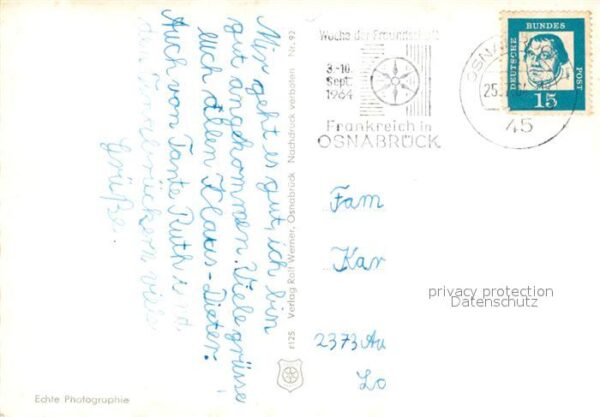 Mir geht es gut, ich bin
gut angekommen. Viele grüsse
euch allen Klaus-Dieter.
Auch von Tante Ruth und
den viele
Grüße.
Echte Photographie
r125 Verlag Rolf Werner, Osnabrück Nachdruck verboten Nr. 92
Woche der Freundschaft
3.-10.
Sept.
1964
Frankreich in
OSNABRÜCK
OSNA
25.
45
DEUTSCHE
BUNDES
POST
15
Fam
Kar
privacy protection
Datenschutz
2373 Au
Lo